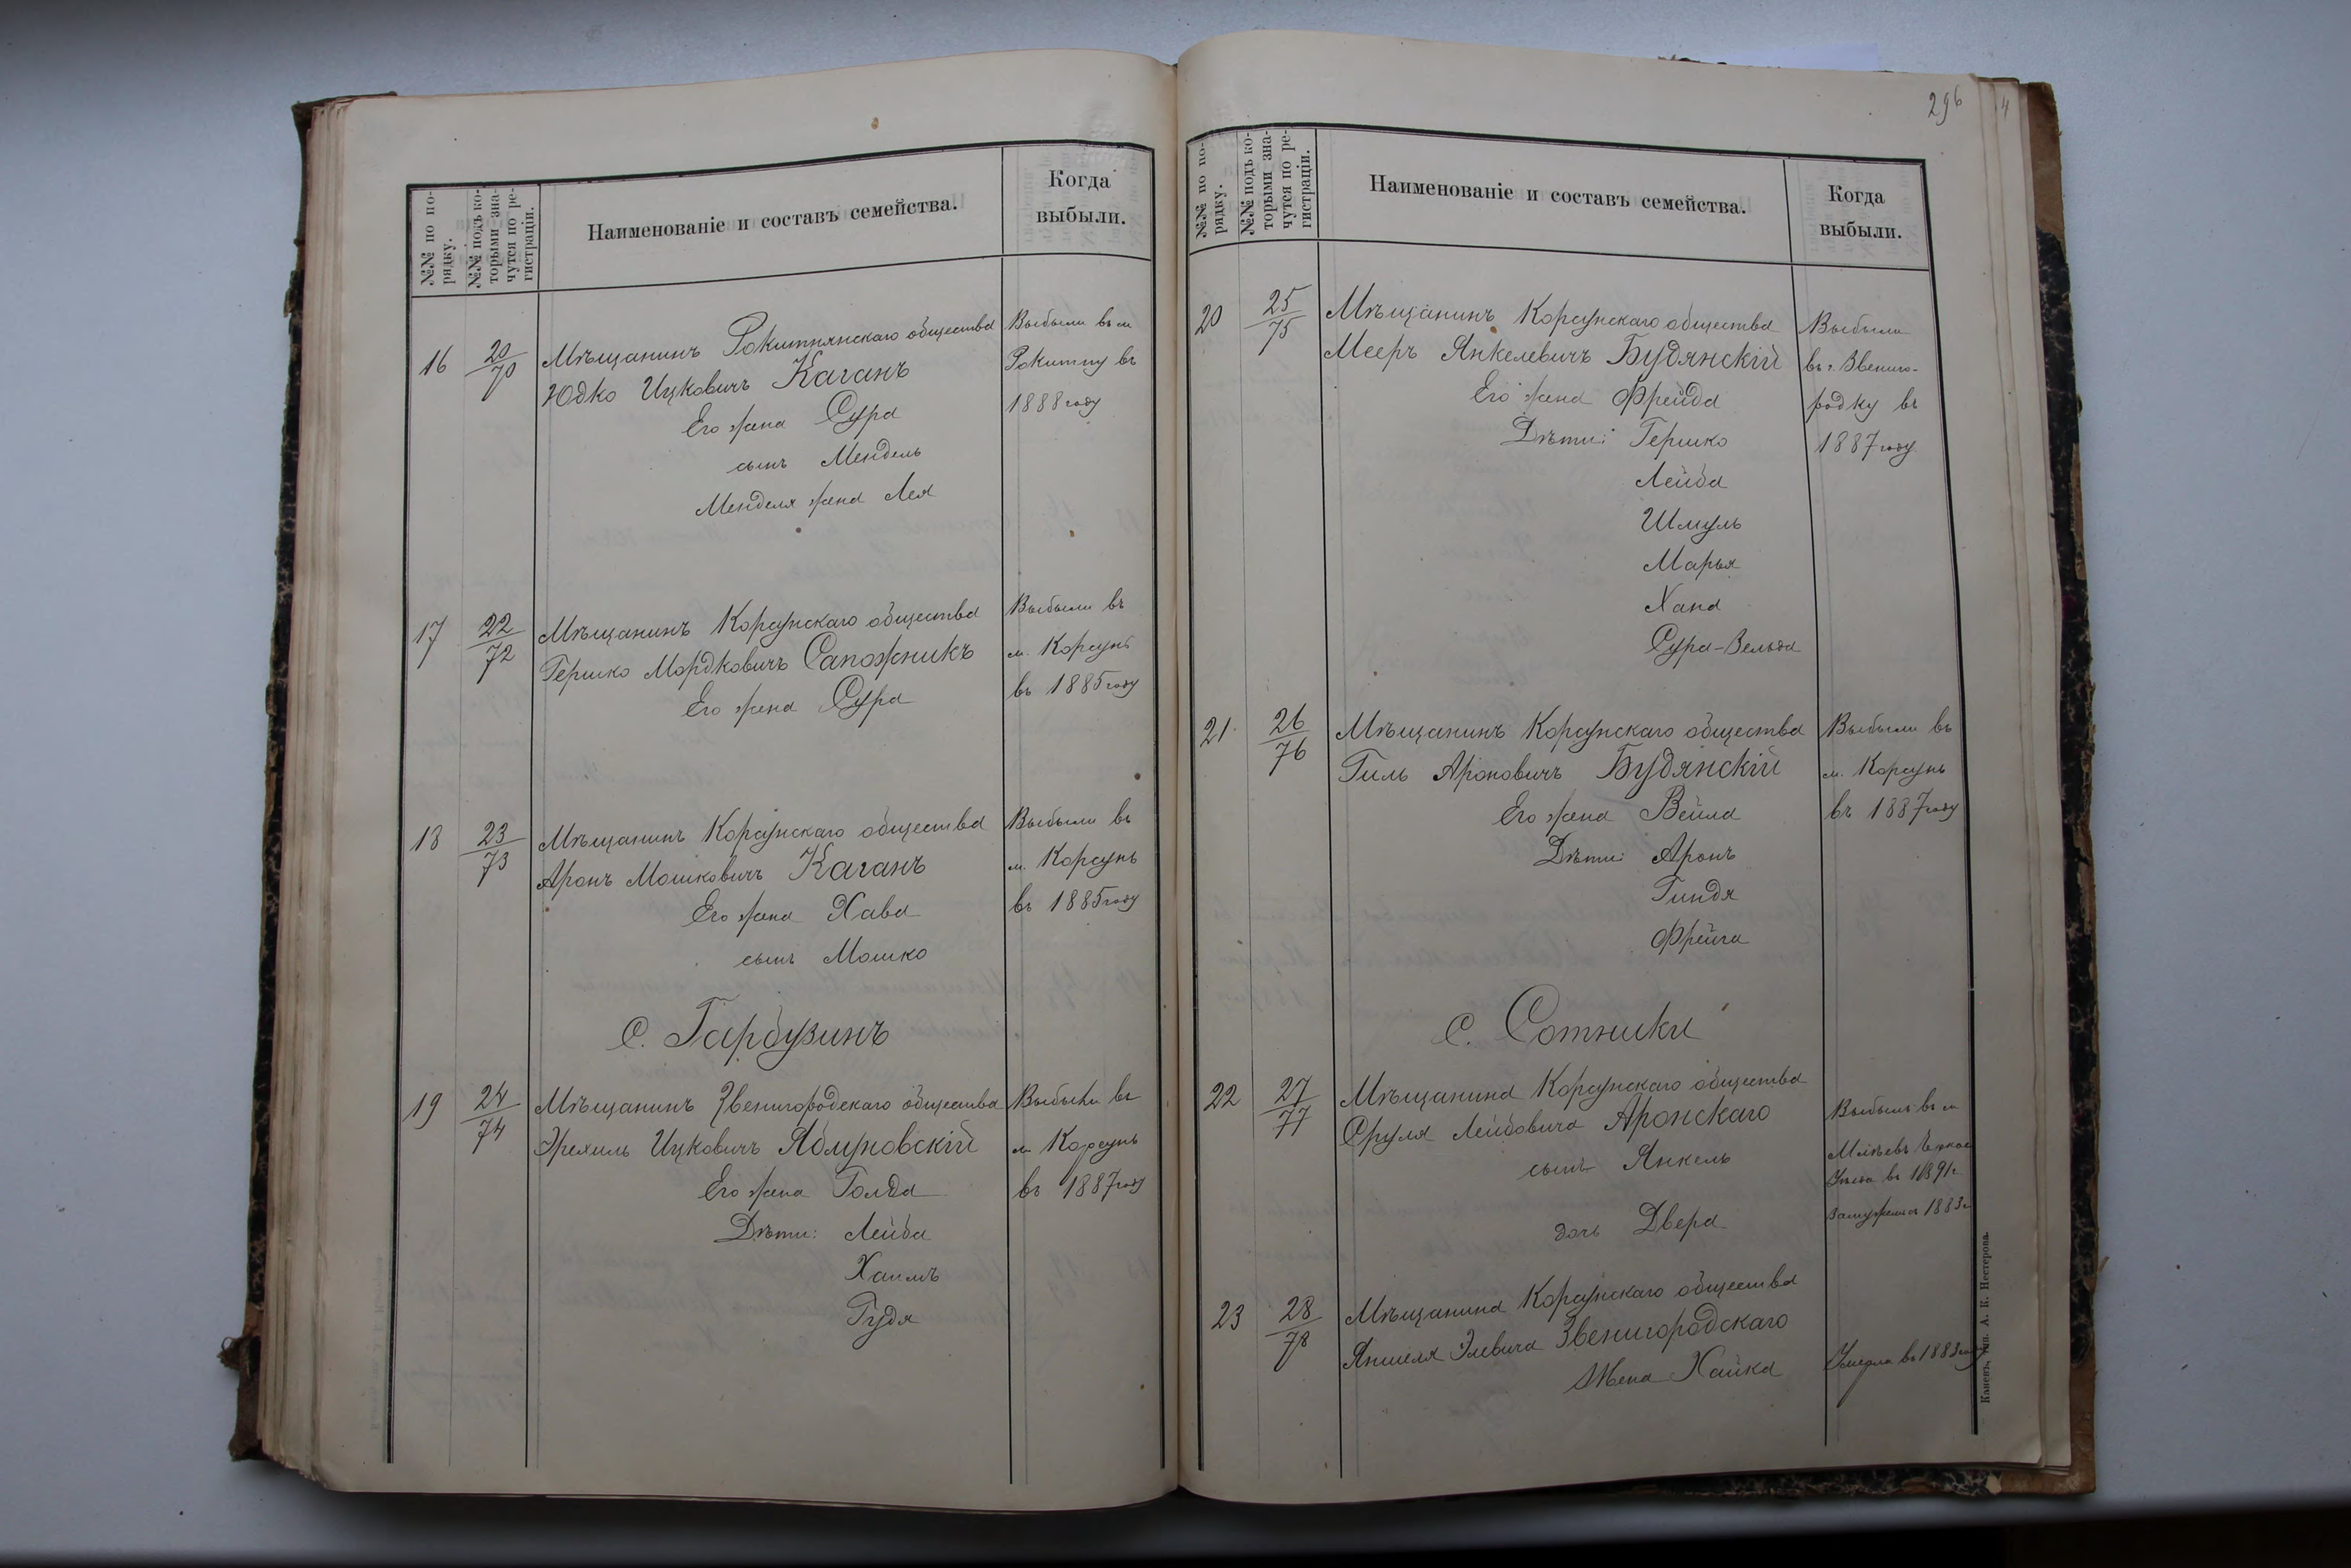 №№ по по-
рядку.
№№ подъ ко-
торыми зна-
чутся по ре-
гистраціи.
Наименованіе и составъ семейства.
Когда
выбыли.
16
20/70
Мѣщанинъ Рокитнянскаго общества
Юдко Ицковичъ Каганъ
Его жена Сура
сынъ Мендель
Менделя жена Лея
Выбыли въ м
Рокитну въ
1888 году
17
22/72
Мѣщанинъ Корсунскаго общества
Гершко Мордковичъ Сапожникъ
Его жена Сура
Выбыли въ
м. Корсунь
въ 1885 году
18
23/73
Мѣщанинъ Корсунскаго общества
Аронъ Мошковичъ Каганъ
Его жена Хава
сынъ Мошко
Выбыли въ
м. Корсунь
въ 1885 году
С. Гарбузинъ
19
24/74
Мѣщанинъ Звенигородскаго общества
Ицковичъ Яблуновскій
Его жена Голда
Дѣти: Лейба
Хаимъ
Гудя
Выбыли въ
м Корсунь
въ 1887 году
296
4
№№ по по-
рядку.
№№ подъ ко-
торыми зна-
чутся по ре-
гистраціи.
Наименованіе и составъ семейства.
Когда
выбыли.
20
25/75
Мѣщанинъ Корсунскаго общества
Мееръ Янкелевичъ Будянскій
Его жена Фрейда
Дѣти: Гершко
Лейба
Шмуль
Марья
Хана
Сура-Вельда
Выбыли
въ г. Звениго-
родку въ
1887 году
21
26/76
Мѣщанинъ Корсунскаго общества
Гиль Ароновичъ Будянскій
Его жена Бейла
Дѣти: Аронъ
Гиндя
Фрейга
Выбыли въ
м. Корсунь
въ 1887 году
С. Сотники
22
27/77
Мѣщанина Корсунскаго общества
Сруля Лейбовича Аронскаго
сынъ Янкель
дочь Двера
Выбылъ въ м
Млѣевъ Черкас
Уѣзда въ 1891 г
замужемъ съ 1883 г
23
28/78
Мѣщанина Корсунскаго общества
Аншеля Элевича Звенигородскаго
Жена Хайка
Умерла въ 1883 году
Каневъ, тип. А. К. Нестерова.